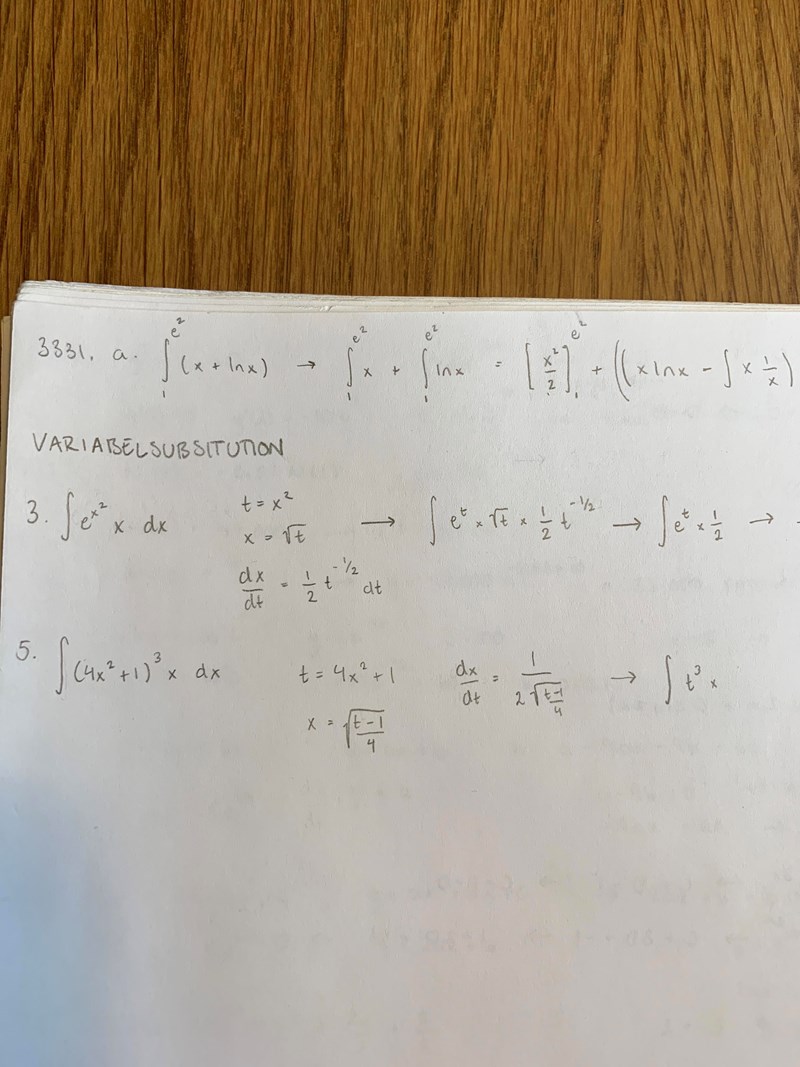 3331. a. ∫₁^e² (x + lnx) → ∫₁^e² x + ∫₁^e² lnx = [x²/2]₁^e² + ((x lnx - ∫ x 1/x)
VARIABELSUBSITUTION
3. ∫ e^x² x dx t = x² → ∫ e^t × √t × 1/2 t^-1/2 → ∫ e^t × 1/2 →
x = √t
dx/dt = 1/2 t^-1/2 dt
5. ∫ (4x²+1)³ x dx t = 4x² + 1 dx/dt = 1/(2√((t-1)/4)) → ∫ t³ ×
x = √((t-1)/4)